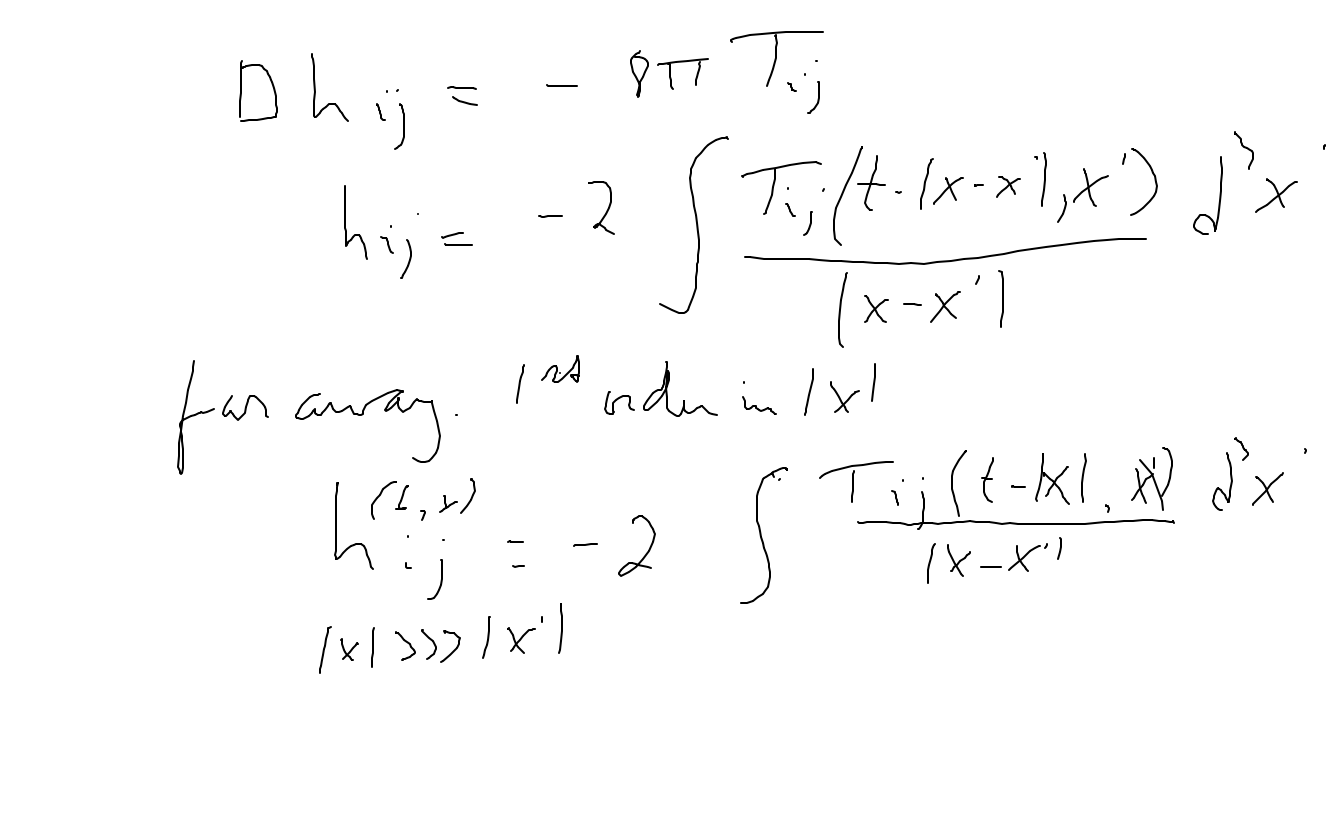 □ h_ij = - 8π T_ij
h_ij = -2 ∫ T_ij(t-|x-x'|, x') / |x-x'| d³x'
far away. 1st order in |x|
h_ij(t,x) = -2 ∫ T_ij(t-|x|, x') / |x-x'| d³x'
|x| >>> |x'|